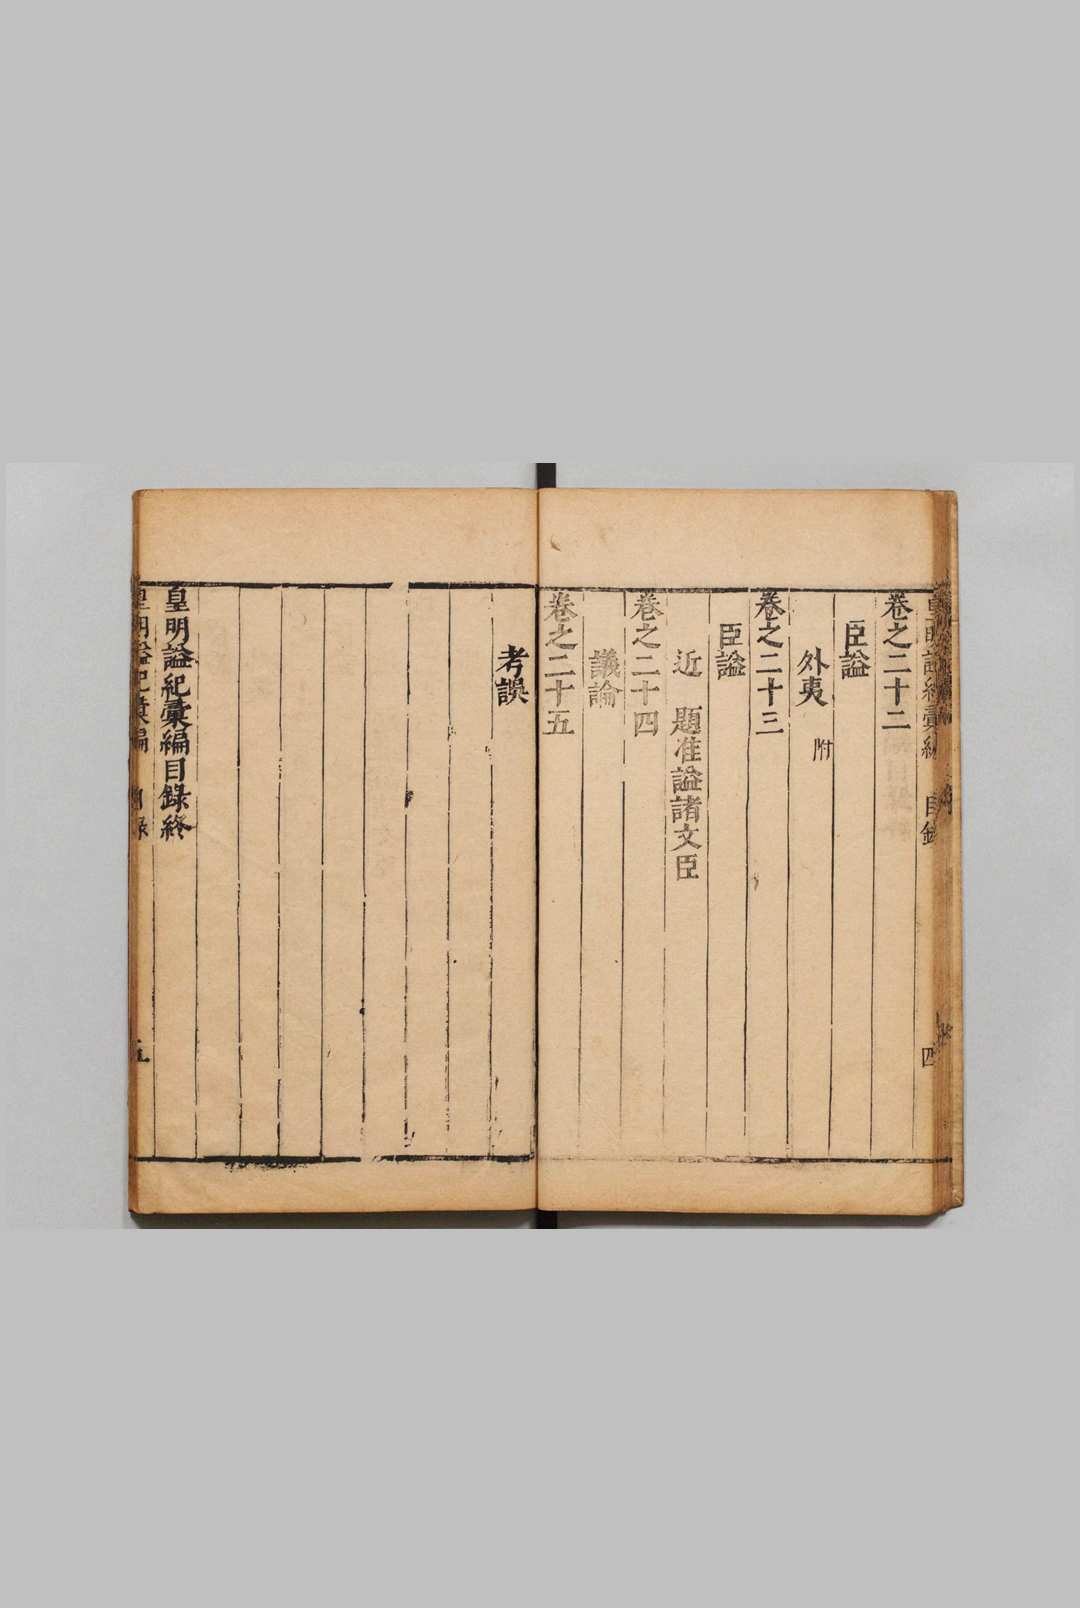 卷之二十二
臣謚
外夷 附
卷之二十三
臣謚
近 題准謚諸文臣
卷之二十四
議論
卷之二十五
考誤
皇明謚紀彙編目錄終
皇明謚紀彙編 目錄 五